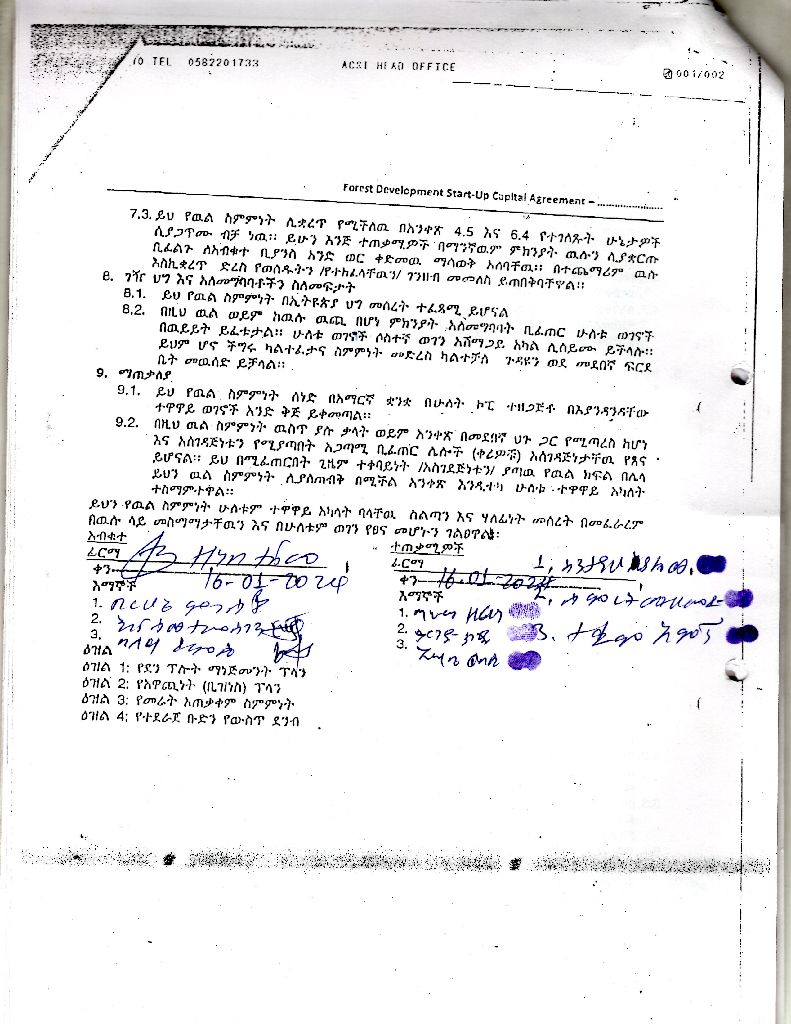 TO TEL 0582201733 ACSI HEAD OFFICE 001/002
Forest Development Start-Up Capital Agreement – ....................
7.3. ይህ የዉል ስምምነት ሊቋረጥ የሚችለዉ በአንቀጽ 4.5 እና 6.4 የተገለጹት ሁኔታዎች
ሲያጋጥሙ ብቻ ነዉ። ይሁን እንጅ ተጠቃሚዎች በማንኛዉም ምክንያት ዉሉን ሊያቋርጡ
ቢፈልጉ ለአብቁተ ቢያንስ አንድ ወር ቀድመዉ ማሳወቅ አለባቸዉ። በተጨማሪም ዉሉ
እስኪቋረጥ ድረስ የወሰዱትን /የተከፈላቸዉን/ ገንዘብ መመለስ ይጠበቅባቸዋል።
8. ገዥ ህግ እና አለመግባባቶችን ስለመፍታት
8.1. ይህ የዉል ስምምነት በኢትዩጵያ ህግ መሰረት ተፈጻሚ ይሆናል
8.2. በዚህ ዉል ወይም ከዉሉ ዉጪ በሆነ ምክንያት አለመግባባት ቢፈጠር ሁለቱ ወገኖች
በዉይይት ይፈቱታል። ሁለቱ ወገኖች ሶስተኛ ወገን አሸማጋይ አካል ሊሰይሙ ይችላሉ።
ይህም ሆኖ ችግሩ ካልተፈታና ስምምነት መድረስ ካልተቻለ ጉዳዩን ወደ መደበኛ ፍርድ
ቤት መዉሰድ ይቻላል።
9. ማጠቃለያ
9.1. ይህ የዉል ስምምነት ሰነድ በአማርኛ ቋንቋ በሁለት ኮፒ ተዘጋጅቶ በእያንዳንዳቸው
ተዋዋይ ወገኖች እንድ ቅጅ ይቀመጣል።
9.2. በዚህ ዉል ስምምነት ዉስጥ ያሉ ቃላት ወይም አንቀጽ በመደበኛ ህጉ ጋር የሚጣረስ ከሆነ
እና አስገዳጅነቱን የሚያጣበት አጋጣሚ ቢፈጠር ሌሎች (ቀሪዎቹ) አስገዳጅነታቸዉ የጸና
ይሆናል። ይህ በሚፈጠርበት ጊዜም ተቀባይነት /አስገደጅነቱን/ ያጣዉ የዉል ክፍል በሌላ
ይህን ዉል ስምምነት ሊያስጠብቅ በሚችል አንቀጽ እንዲተካ ሁለቱ ተዋዋይ አካላት
ተስማምተዋል።
ይህን የዉል ስምምነት ሁለቱም ተዋዋይ አካላት ባላቸዉ ስልጣን እና ሃላፊነት መሰረት በመፈራረም
በዉሉ ላይ መስማማታቸዉን እና በሁለቱም ወገን የፀና መሆኑን ገልፀዋል።
አብቁተ ተጠቃሚዎች
ፊርማ ፊርማ 1.
ቀን 16-01-2024 ቀን 16-01-2024 2.
እማኞች እማኞች
1. 1.
2. 2. 3.
3. 3.
ዕዝል
ዕዝል 1: የደን ፕሎት ማነጅመንት ፕላን
ዕዝል 2: የአዋጪነት (ቢዝነስ) ፕላን
ዕዝል 3: የመሬት አጠቃቀም ስምምነት
ዕዝል 4: የተደራጀ ቡድን የውስጥ ደንብ